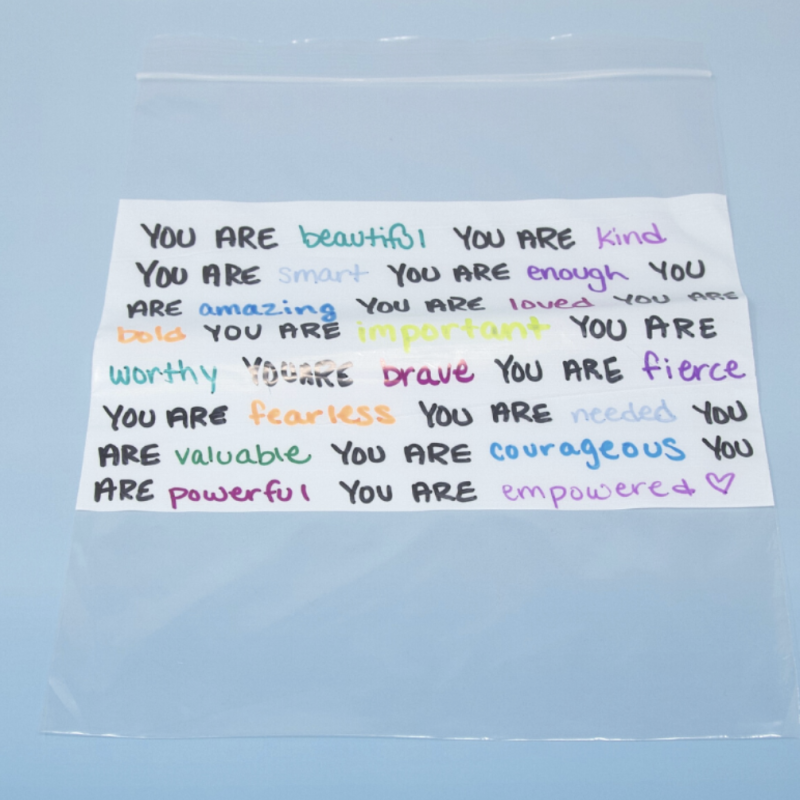 YOU ARE beautiful YOU ARE kind
YOU ARE smart YOU ARE enough YOU
ARE amazing YOU ARE loved YOU ARE
bold YOU ARE important YOU ARE
worthy YOU ARE brave YOU ARE fierce
YOU ARE fearless YOU ARE needed YOU
ARE valuable YOU ARE courageous YOU
ARE powerful YOU ARE empowered ♡